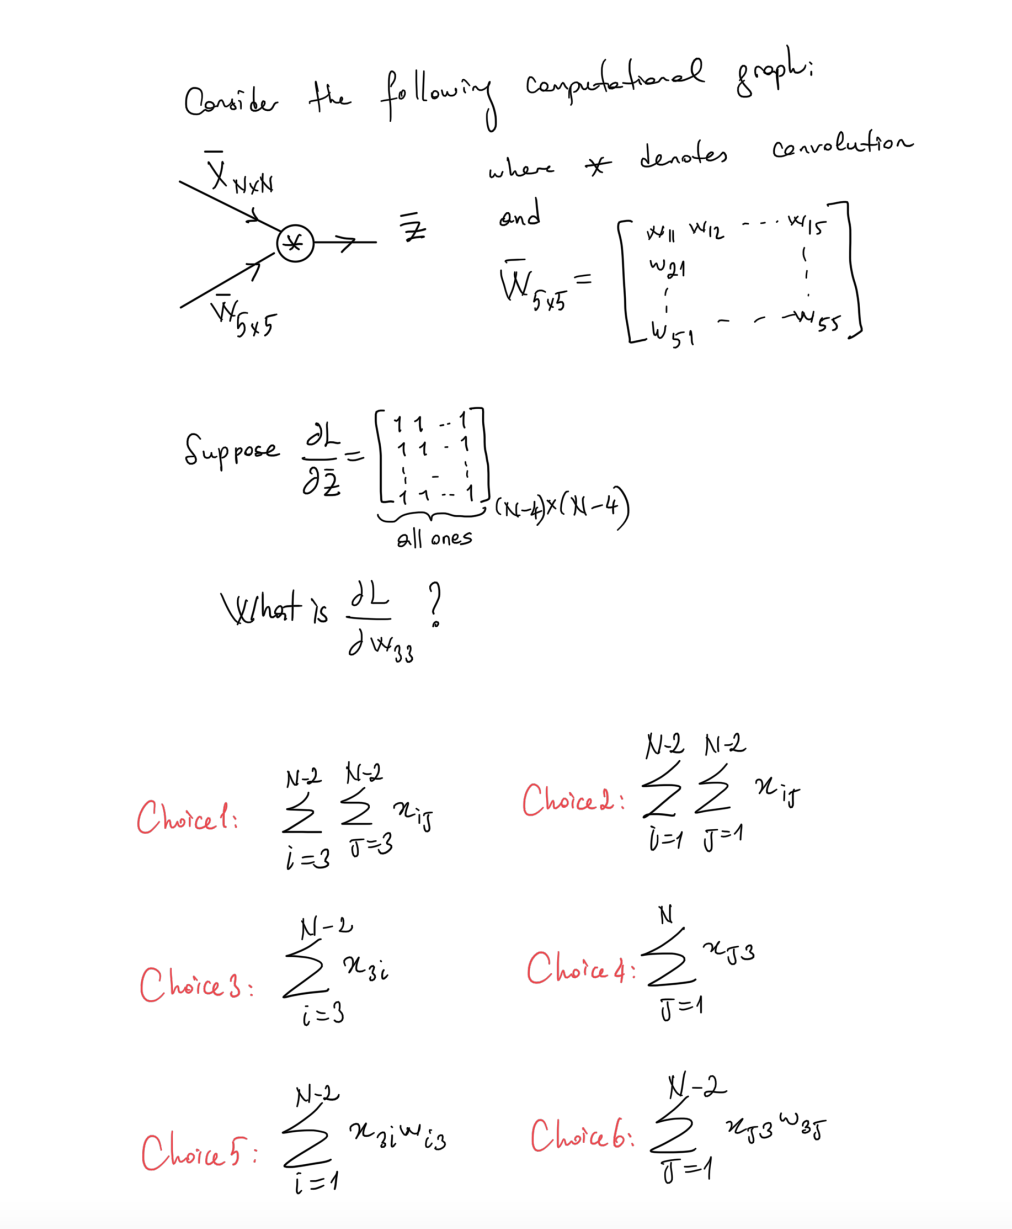 Consider the following computational graph:
X̄ N×N
where * denotes convolution
* z̄
and
W̄ 5×5
W̄ 5×5 = [ w11 w12 --- w15
w21
w51 - - - w55 ]
Suppose ∂L/∂z̄ = [ 1 1 -- 1
1 1 - 1
1 1 -- 1 ] (N-4)×(N-4)
all ones
What is ∂L/∂w33 ?
Choice 1: ∑_{i=3}^{N-2} ∑_{J=3}^{N-2} x_{iJ}
Choice 2: ∑_{i=1}^{N-2} ∑_{J=1}^{N-2} x_{iJ}
Choice 3: ∑_{i=3}^{N-2} x_{3i}
Choice 4: ∑_{J=1}^{N} x_{J3}
Choice 5: ∑_{i=1}^{N-2} x_{3i} w_{i3}
Choice 6: ∑_{J=1}^{N-2} x_{J3} w_{3J}